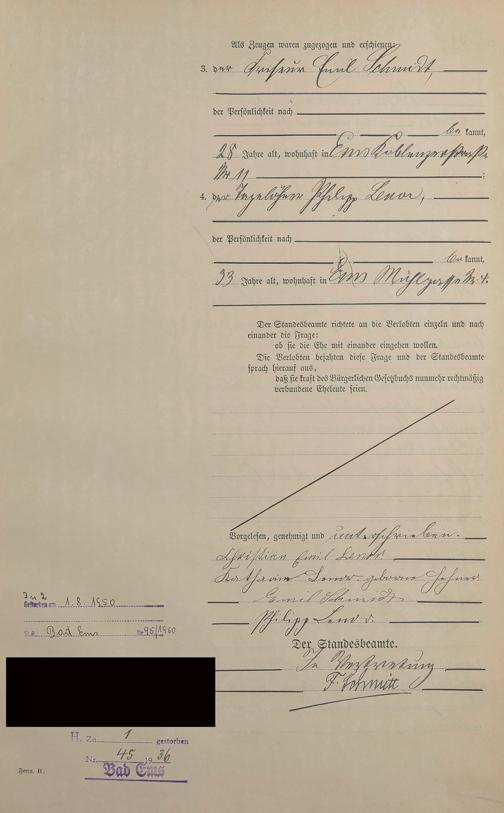 Als Zeugen waren zugezogen und erschienen:
3. der Friseur Emil Schmidt,
der Persönlichkeit nach
be kannt,
28 Jahre alt, wohnhaft in Ems Koblenzerstraße
Nr 11 ;
4. der Tagelöhner Philipp Lenor,
der Persönlichkeit nach
be kannt,
33 Jahre alt, wohnhaft in Ems Mühlgasse Nr. 4.
Der Standesbeamte richtete an die Verlobten einzeln und nach
einander die Frage:
ob sie die Ehe mit einander eingehen wollen.
Die Verlobten bejahten diese Frage und der Standesbeamte
sprach hierauf aus,
daß sie kraft des Bürgerlichen Gesetzbuchs nunmehr rechtmäßig
verbundene Eheleute seien.
Vorgelesen, genehmigt und unterschrieben.
Christian Emil Lenor
Katharina Lenor geborene
Emil Schmidt
Philipp Lenor
Der Standesbeamte.
In Vertretung
F. Schmitt
Zu 2
Gestorben am 1.8.1950
Bad Ems Nr 95/1950
H. Zu 1 gestorben
Nr. 45 1936
Bad Ems
Form. B.